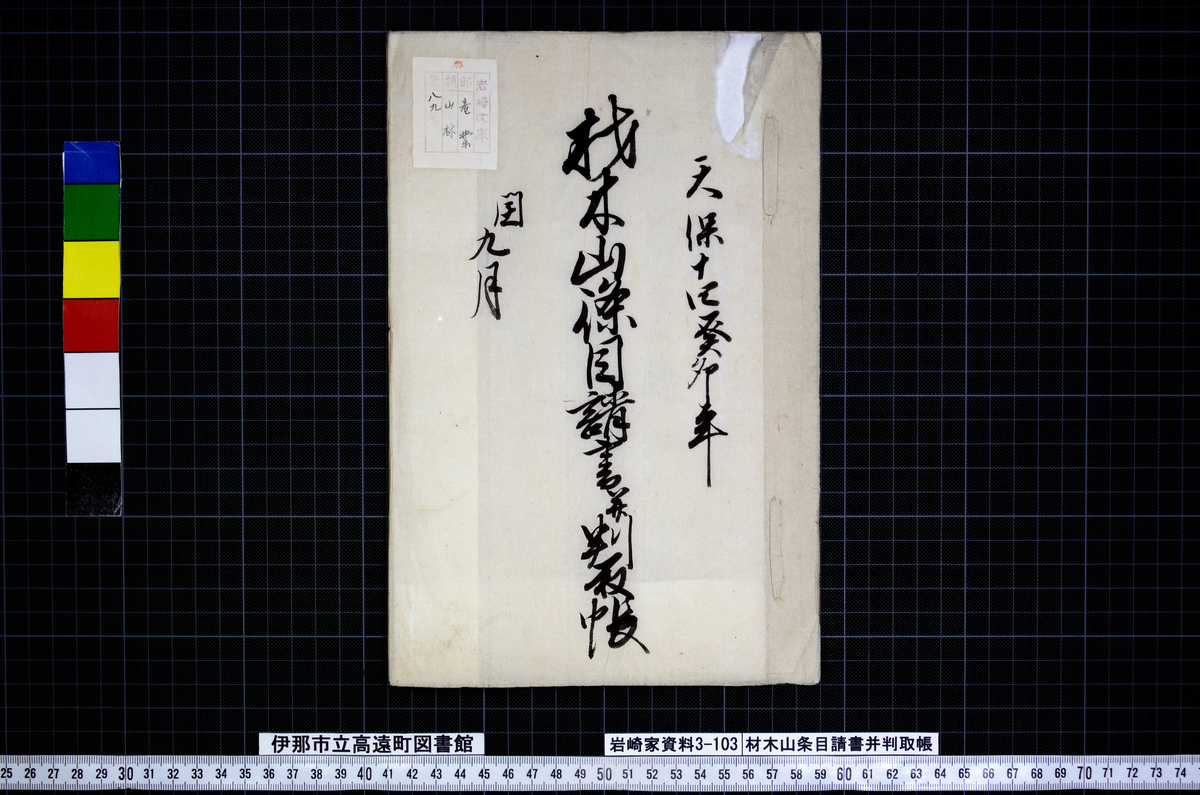 天保十四癸卯年
材木山條目請書并判取帳
閏九月
岩崎文庫
部 産業
類 山林
八九
伊那市立高遠町図書館
岩崎家資料3-103
材木山条目請書并判取帳
25 26 27 28 29 30 31 32 33 34 35 36 37 38 39 40 41 42 43 44 45 46 47 48 49 50 51 52 53 54 55 56 57 58 59 60 61 62 63 64 65 66 67 68 69 70 71 72 73 74